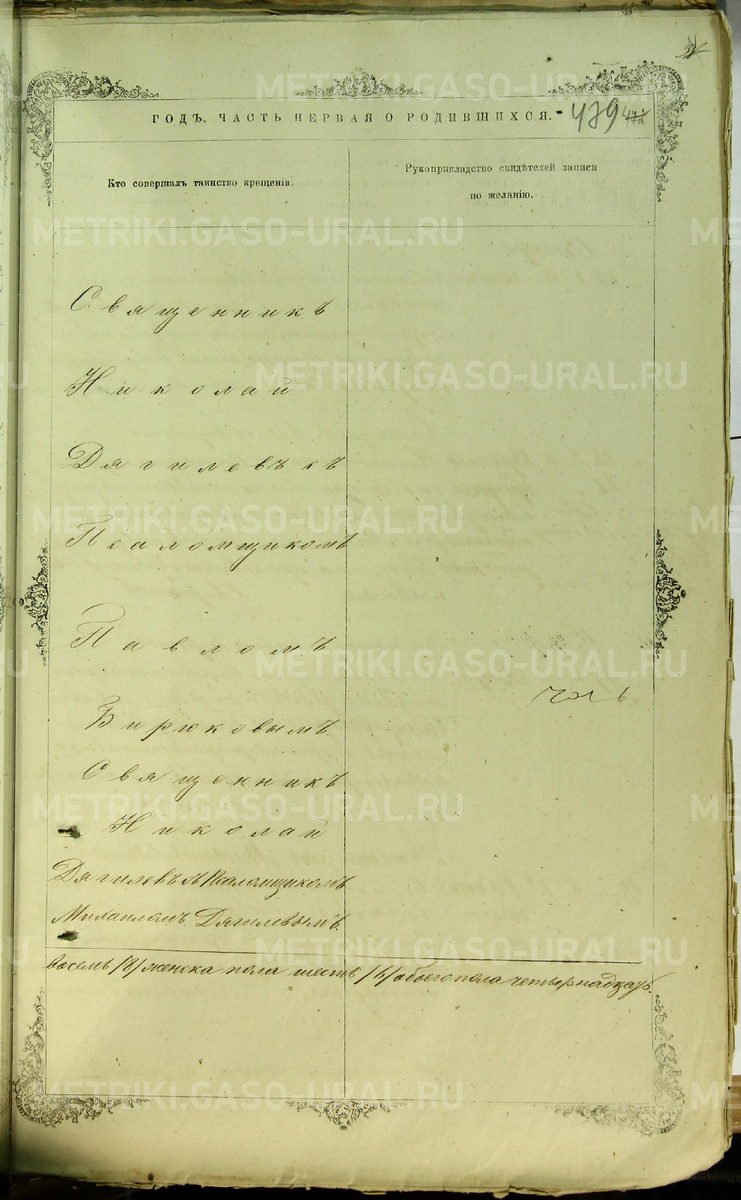 ГОДЪ, ЧАСТЬ ПЕРВАЯ О РОДИВШИХСЯ. 479
Кто совершалъ таинство крещенія.
Рукоприкладство свидѣтелей записи
по желанію.
Священникъ
Николай
Дягилевъ съ
Псаломщикомъ
Павломъ
Бирюковымъ
Священникъ
Николай
Дягилевъ съ Псаломщикомъ
Михаиломъ Дягилевымъ.
восемь /8/ женска пола шесть /6/ обоего пола четырнадцать.
METRIKI.GASO-URAL.RU